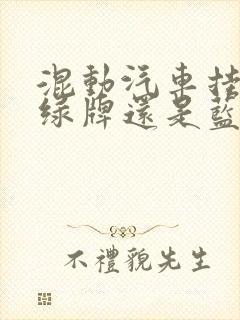 混動汽車掛
綠牌還是藍
不禮貌先生